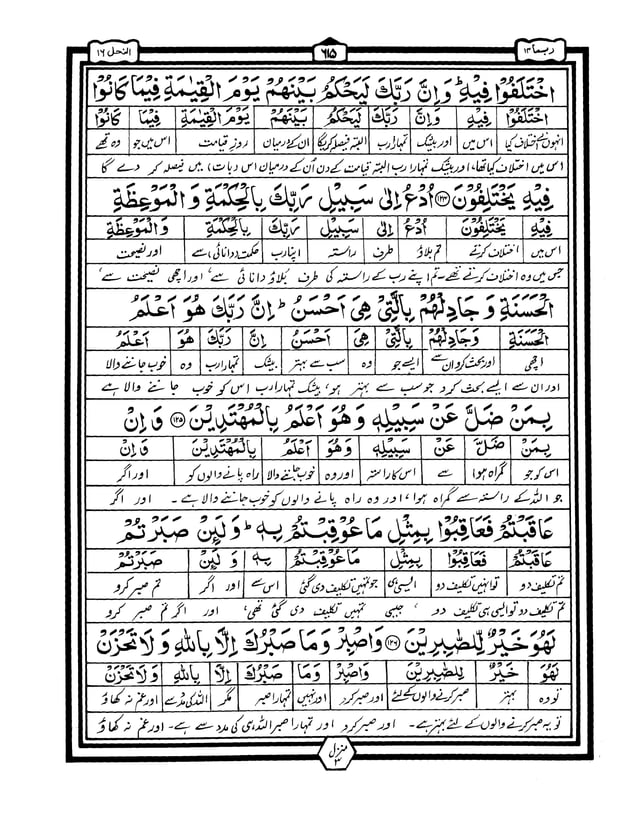 ربما ١٤
٦١٥
النحل ١٦
اخْتَلَفُوْا فِيْهِ ؕ وَاِنَّ رَبَّكَ لَيَحْكُمُ بَيْنَهُمْ يَوْمَ الْقِيٰمَةِ فِيْمَا كَانُوْا
اخْتَلَفُوْا فِيْهِ وَاِنَّ رَبَّكَ لَيَحْكُمُ بَيْنَهُمْ يَوْمَ الْقِيٰمَةِ فِيْمَا كَانُوْا
انہوں نے اختلاف کیا اس میں اور بیشک تمہارا رب البتہ فیصلہ کریگا ان کے درمیان روزِ قیامت اس میں جو وہ تھے
اس میں اختلاف کیا تھا، اور بیشک تمہارا رب البتہ قیامت کے دن اُن کے درمیان اس (بات) میں فیصلہ کر دے گا
فِيْهِ يَخْتَلِفُوْنَ ۝۱۲۴ اُدْعُ اِلٰى سَبِيْلِ رَبِّكَ بِالْحِكْمَةِ وَ الْمَوْعِظَةِ
فِيْهِ يَخْتَلِفُوْنَ اُدْعُ اِلٰى سَبِيْلِ رَبِّكَ بِالْحِكْمَةِ وَالْمَوْعِظَةِ
اس میں اختلاف کرتے تم بلاؤ طرف راستہ اپنا رب حکمت (دانائی) سے اور نصیحت
جس میں وہ اختلاف کرتے تھے۔ تم اپنے رب کے راستہ کی طرف بلاؤ دانائی سے، اور اچھی نصیحت سے،
الْحَسَنَةِ وَ جَادِلْهُمْ بِالَّتِيْ هِيَ اَحْسَنُ ؕ اِنَّ رَبَّكَ هُوَ اَعْلَمُ
الْحَسَنَةِ وَجَادِلْهُمْ بِالَّتِيْ هِيَ اَحْسَنُ اِنَّ رَبَّكَ هُوَ اَعْلَمُ
اچھی اور بحث کرو ان سے ایسے جو وہ سب سے بہتر بیشک تمہارا رب وہ خوب جاننے والا
اور ان سے ایسے بحث کرو جو سب سے بہتر ہو، بیشک تمہارا رب اس کو خوب جاننے والا ہے
بِمَنْ ضَلَّ عَنْ سَبِيْلِهٖ وَهُوَ اَعْلَمُ بِالْمُهْتَدِيْنَ ۝۱۲۵ وَ اِنْ
بِمَنْ ضَلَّ عَنْ سَبِيْلِهٖ وَهُوَ اَعْلَمُ بِالْمُهْتَدِيْنَ وَ اِنْ
اس کو جو گمراہ ہوا سے اس کا راستہ اور وہ خوب جاننے والا راہ پانے والوں کو اور اگر
جو اللہ کے راستہ سے گمراہ ہوا، اور وہ راہ پانے والوں کو خوب جاننے والا ہے۔ اور اگر
عَاقَبْتُمْ فَعَاقِبُوْا بِمِثْلِ مَا عُوْقِبْتُمْ بِهٖ ؕ وَ لَئِنْ صَبَرْتُمْ
عَاقَبْتُمْ فَعَاقِبُوْا بِمِثْلِ مَاعُوْقِبْتُمْ بِهٖ وَ لَئِنْ صَبَرْتُمْ
تم تکلیف دو تو انہیں تکلیف دو ایسی ہی جو تمہیں تکلیف دی گئی اس سے اور اگر تم صبر کرو
تم تکلیف دو تو ایسی ہی تکلیف دو، جیسی تمہیں تکلیف دی گئی تھی، اور اگر تم صبر کرو
لَهُوَ خَيْرٌ لِّلصّٰبِرِيْنَ ۝۱۲۶ وَاصْبِرْ وَمَا صَبْرُكَ اِلَّا بِاللّٰهِ وَلَا تَحْزَنْ
لَهُوَ خَيْرٌ لِّلصّٰبِرِيْنَ وَاصْبِرْ وَمَا صَبْرُكَ اِلَّا بِاللّٰهِ وَلَا تَحْزَنْ
تو وہ بہتر صبر کرنے والوں کے لئے اور صبر کرو اور نہیں تمہارا صبر مگر اللہ کی مدد سے اور غم نہ کھاؤ
تو یہ صبر کرنے والوں کے لئے بہتر ہے۔ اور صبر کرو اور تمہارا صبر اللہ ہی کی مدد سے ہے۔ اور غم نہ کھاؤ
منزل ۳